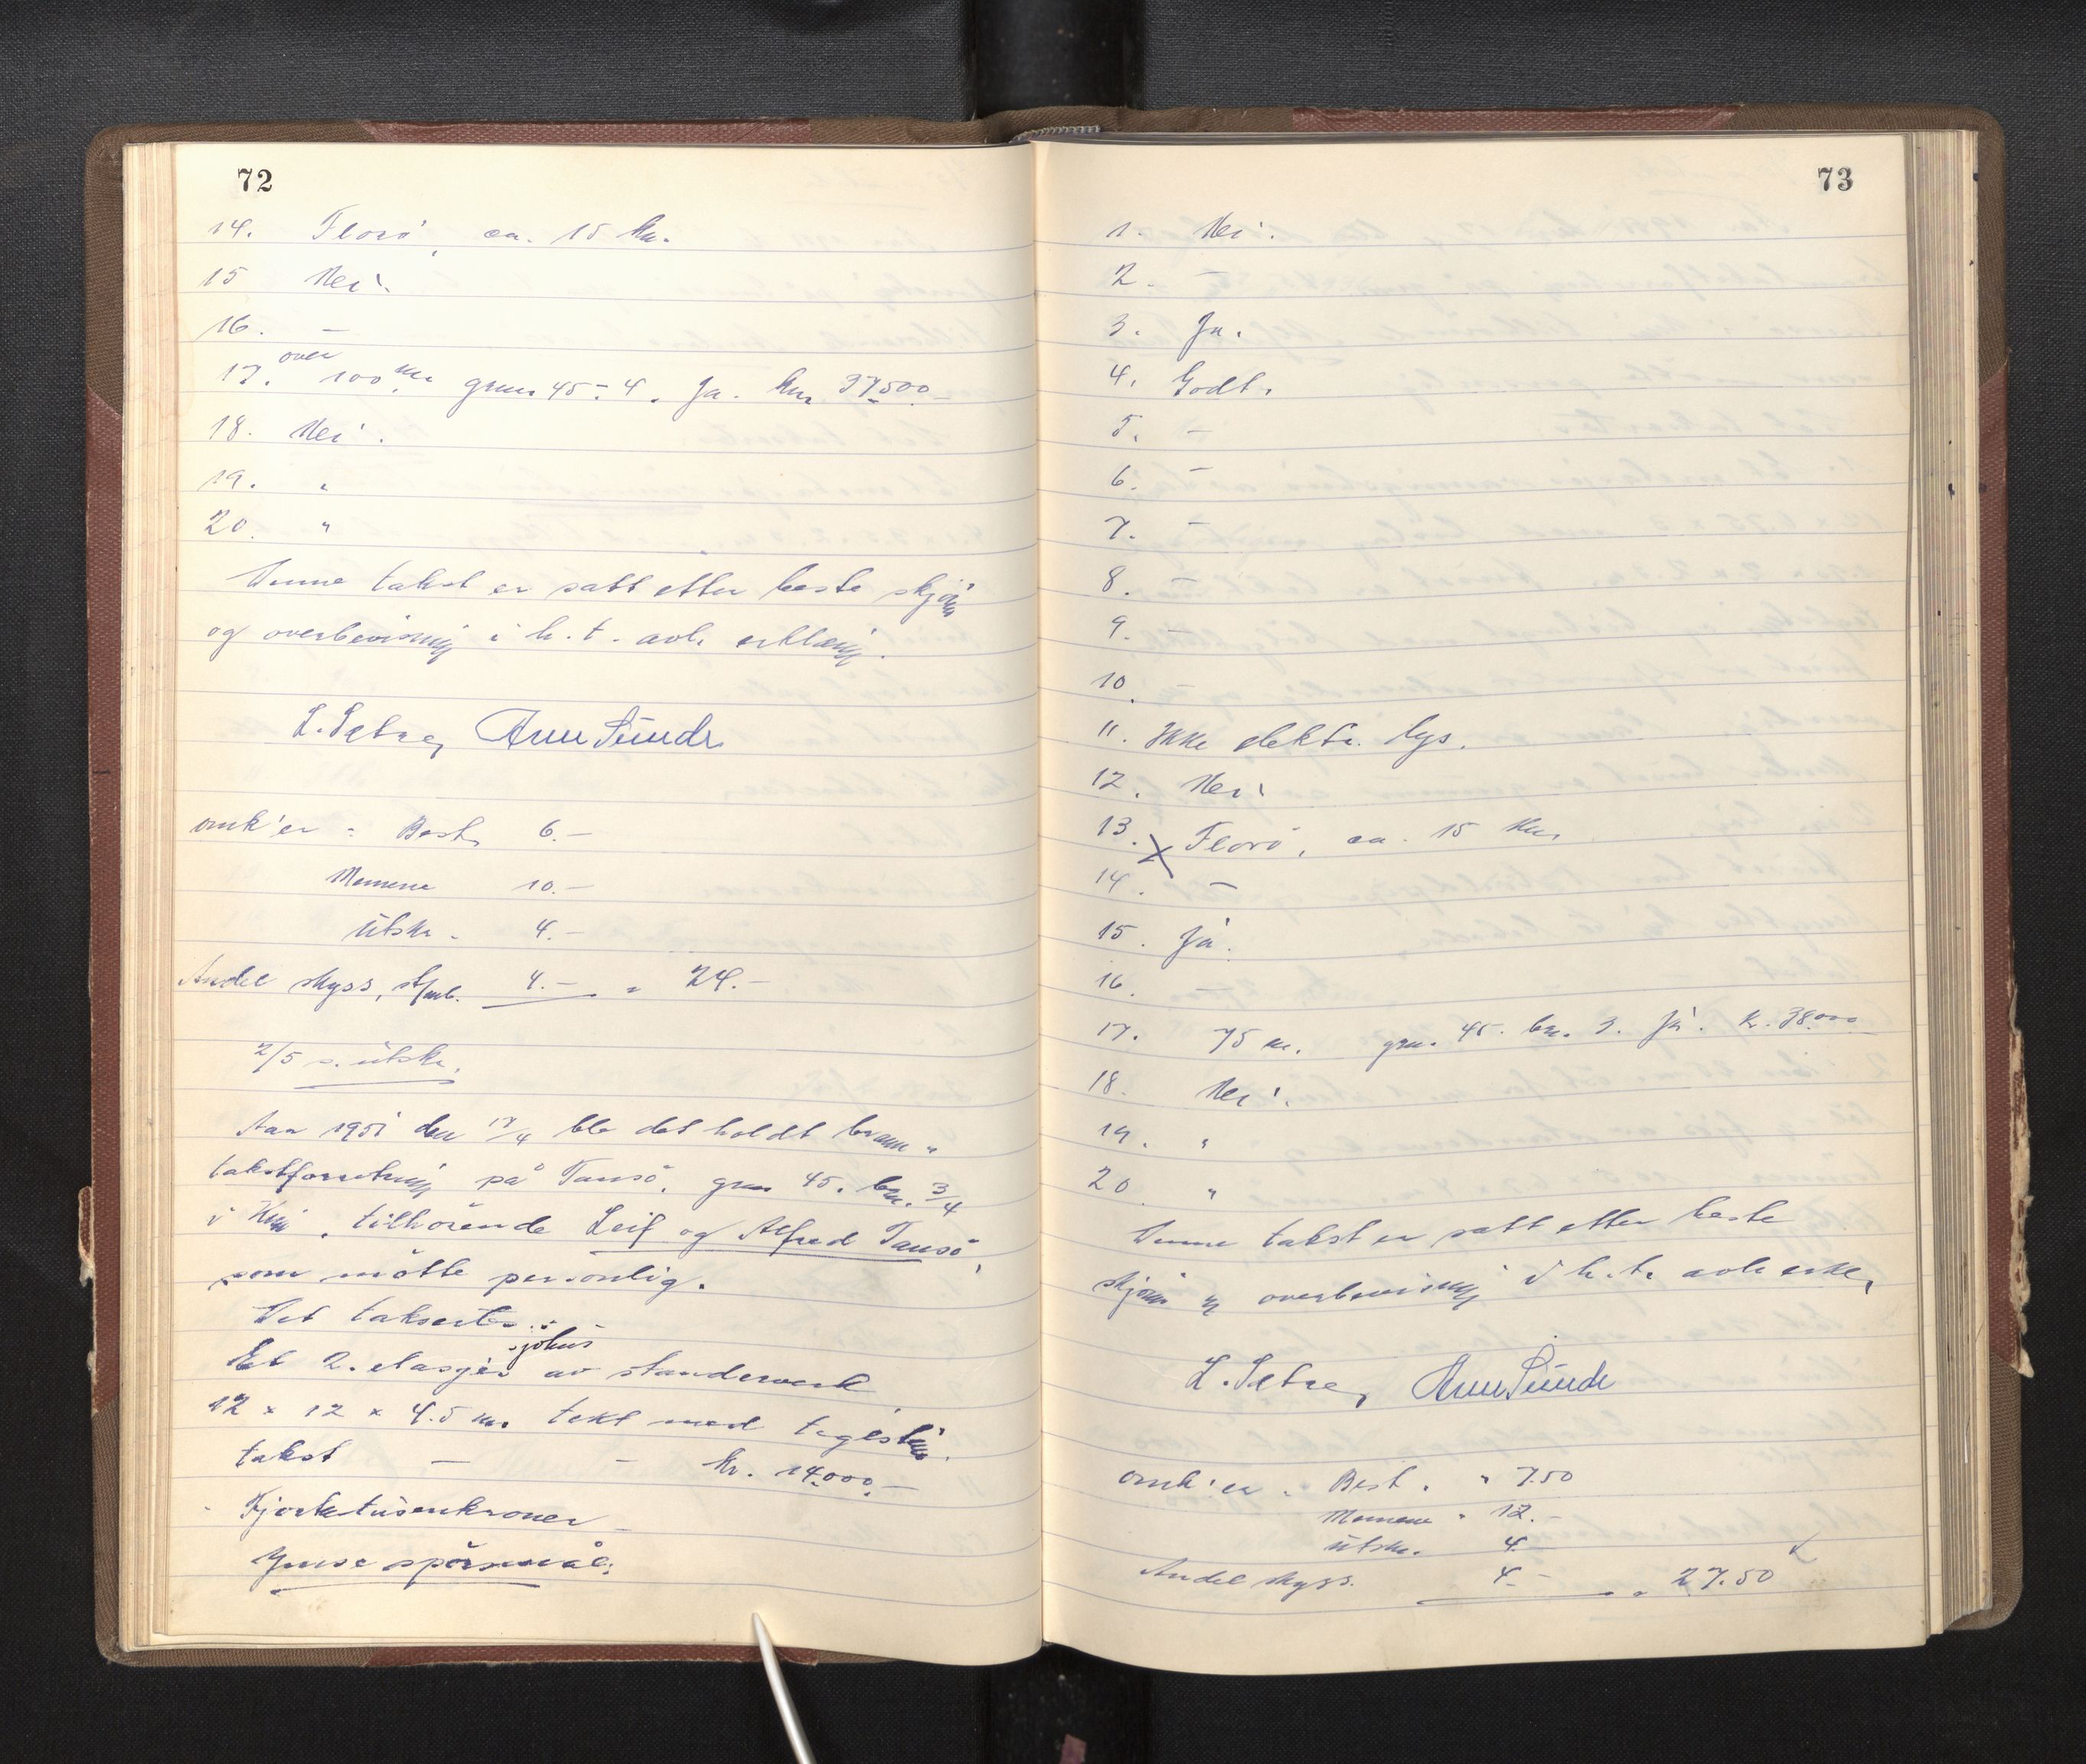 72
14. Florö, ca. 15 km.
15 Nei.
16. —
over
17. 100 m grnr 45 - 4. Ja. kr. 37.500.-
18. Nei.
19. "
20. "
Denne takst er satt etter beste skjönn
og overbevisning i h.t. avlr erklæring.
L. Sætre, Arne Sunde
omk'er : Best. 6.-
Mennene 10.-
Utskr. 4.-
Andel skyss, 4.- = 24.-
2/5 s. utskr.
Aar 1951 den 17/4 ble det holdt brann-
takstforretning på Tansö, gnr 45. bnr. 3/4
i Kinn, tilhörende Leif og Alfred Tansö,
som mötte personlig.
Det takseres:
sjöhus
Et 2. etasjes av standerverk
12 x 12 x 4.5 m. tekt med teglstein.
takst — - kr. 14.000.-
Fjortentusenkroner
Ymse spörsmål:
73
1. Nei.
2. —
3. Ja.
4. Godt.
5. —
6. —
7. —
8. —
9. —
10. —
11. Ikke elektr. lys.
12. Nei
13. x Florö, ca. 15 km.
14. —
15. Ja.
16. —
17. 75 m. gnr. 45. bnr. 3. Ja. kr. 38.000
18. Nei.
19. "
20 "
Denne takst er satt etter beste
skjönn og overbevisning i h.t. avlr erkl.
L. Sætre, Arne Sunde
omk'er. Best. " 7.50
Mennene " 12.-
Utskr. 4.
Andel skyss. 4.- = 27.50